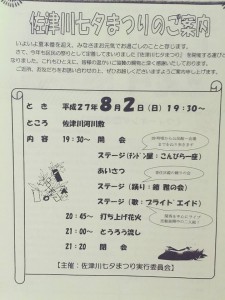 佐津川七夕まつりのご案内
いよいよ夏本番を迎え、みなさまお元気でお過ごしのことと存じます。
さて、今年も区民の祭りとして定着してまいりました「佐津川七夕まつり」を開催する運びと
なりました。これもひとえに、皆様の温かいご協賛の賜物と深く感謝いたしております。
ご近所、お友だちをお誘い合わせの上、ぜひお越しくださいますようご案内申し上げます。
とき 平成27年8月2日(日)19:30~
ところ 佐津川河川敷
内容 19:30~ 開会
ステージ(チンドン屋:こんぴら一座)
あいさつ
ステージ(踊り:穂雅の会)
ステージ(歌:ブライト エイド)
20:45~ 打ち上げ花火
21:00~ とうろう流し
21:20 閉会
【主催:佐津川七夕まつり実行委員会】